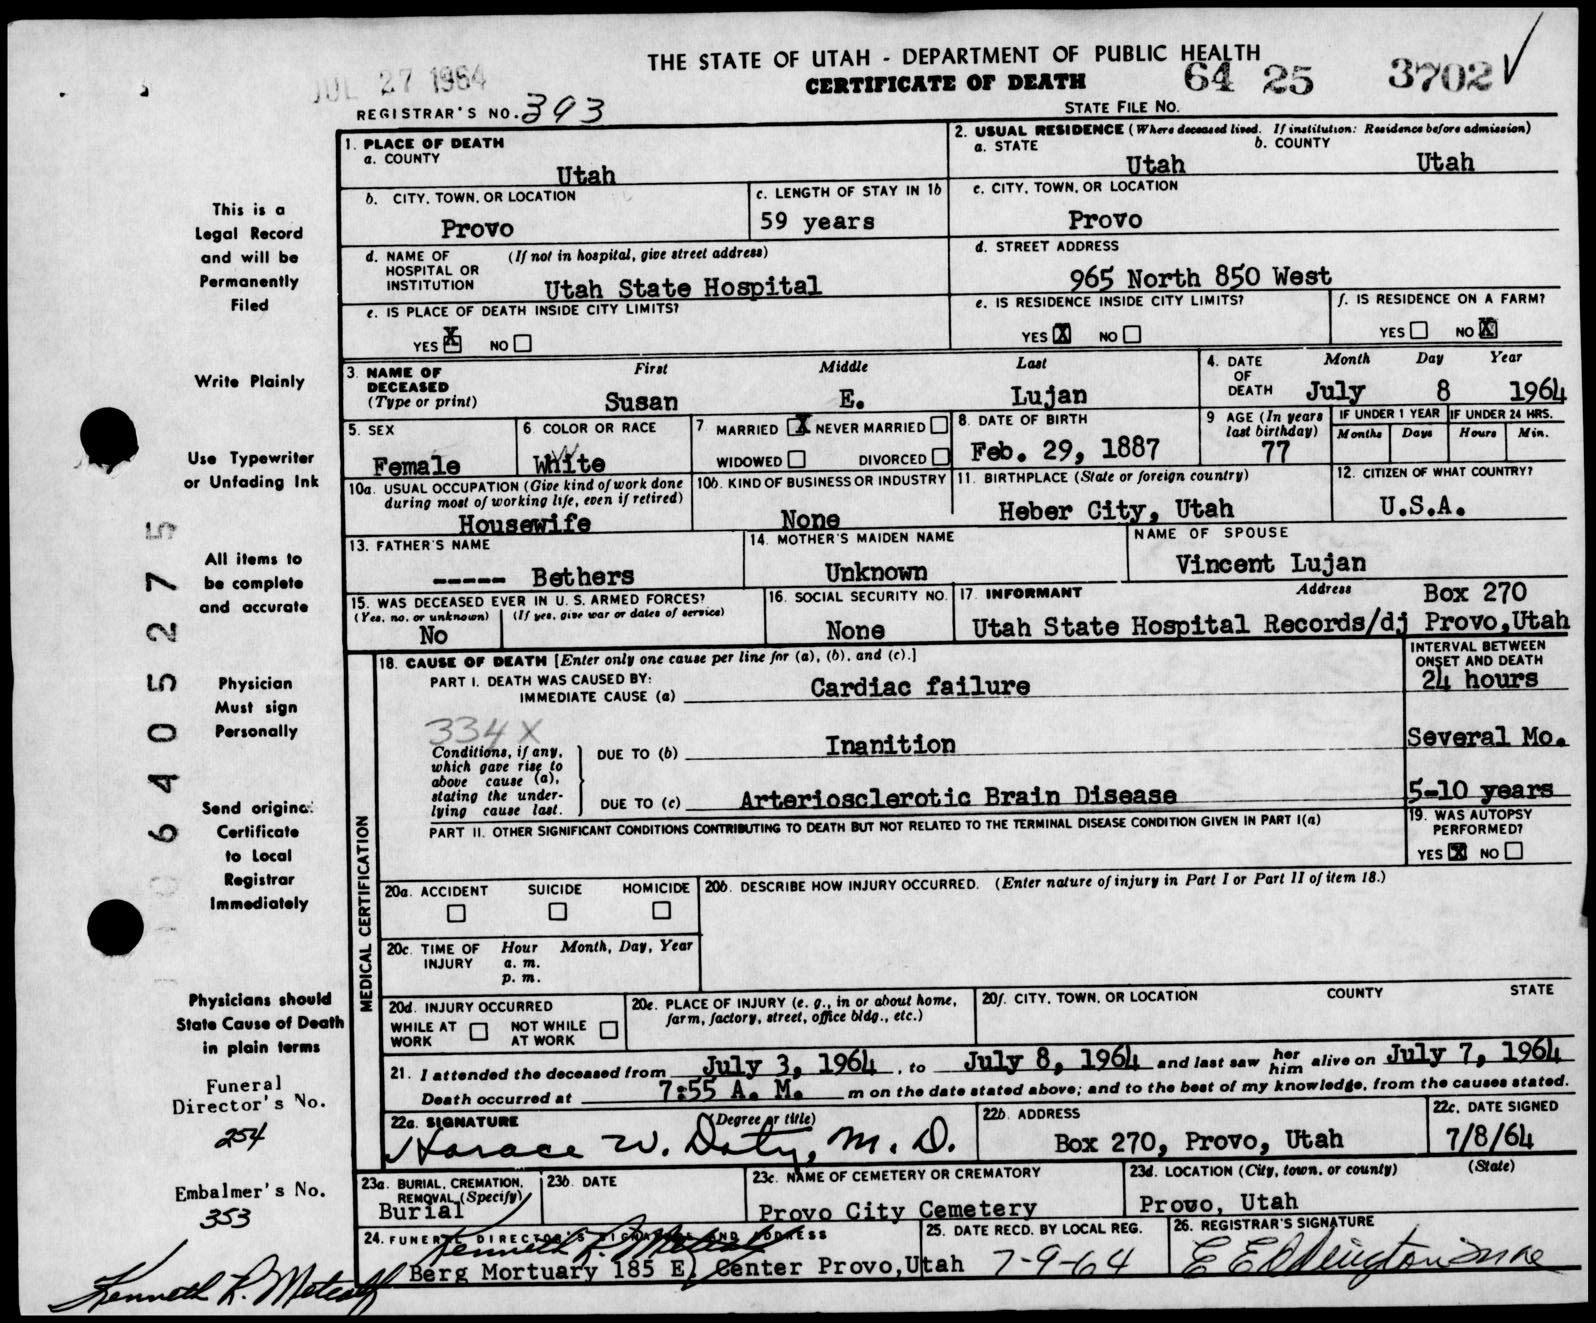 THE STATE OF UTAH - DEPARTMENT OF PUBLIC HEALTH
JUL 27 1964
CERTIFICATE OF DEATH 64 25 3702 ✓
REGISTRAR'S NO. 393
STATE FILE No.
1. PLACE OF DEATH
a. COUNTY
Utah
2. USUAL RESIDENCE (Where deceased lived. If institution: Residence before admission)
a. STATE b. COUNTY
Utah Utah
b. CITY, TOWN, OR LOCATION
Provo
c. LENGTH OF STAY IN 1b
59 years
c. CITY, TOWN, OR LOCATION
Provo
d. NAME OF (If not in hospital, give street address)
HOSPITAL OR
INSTITUTION Utah State Hospital
d. STREET ADDRESS
965 North 850 West
e. IS PLACE OF DEATH INSIDE CITY LIMITS?
YES X NO
e. IS RESIDENCE INSIDE CITY LIMITS?
YES X NO
f. IS RESIDENCE ON A FARM?
YES NO X
3. NAME OF First Middle Last
DECEASED
(Type or print) Susan E. Lujan
4. DATE Month Day Year
OF
DEATH July 8 1964
5. SEX
Female
6 COLOR OR RACE
White
7 MARRIED X NEVER MARRIED
WIDOWED DIVORCED
8. DATE OF BIRTH
Feb. 29, 1887
9 AGE (In years
last birthday)
77
IF UNDER 1 YEAR IF UNDER 24 HRS.
Months Days Hours Min.
10a. USUAL OCCUPATION (Give kind of work done
during most of working life, even if retired)
Housewife
10b. KIND OF BUSINESS OR INDUSTRY
None
11. BIRTHPLACE (State or foreign country)
Heber City, Utah
12. CITIZEN OF WHAT COUNTRY?
U.S.A.
13. FATHER'S NAME
----- Bethers
14. MOTHER'S MAIDEN NAME
Unknown
NAME OF SPOUSE
Vincent Lujan
15. WAS DECEASED EVER IN U. S. ARMED FORCES?
(Yes, no, or unknown) (If yes, give war or dates of service)
No
16. SOCIAL SECURITY NO.
None
17. INFORMANT Address Box 270
Utah State Hospital Records/dj Provo,Utah
18. CAUSE OF DEATH [Enter only one cause per line for (a), (b), and (c).]
INTERVAL BETWEEN
ONSET AND DEATH
PART I. DEATH WAS CAUSED BY:
IMMEDIATE CAUSE (a) Cardiac failure 24 hours
334 X
Conditions, if any,
which gave rise to
above cause (a),
stating the under-
lying cause last.
DUE TO (b) Inanition Several Mo.
DUE TO (c) Arteriosclerotic Brain Disease 5-10 years
PART II. OTHER SIGNIFICANT CONDITIONS CONTRIBUTING TO DEATH BUT NOT RELATED TO THE TERMINAL DISEASE CONDITION GIVEN IN PART I(a)
19. WAS AUTOPSY
PERFORMED?
YES X NO
MEDICAL CERTIFICATION
20a. ACCIDENT SUICIDE HOMICIDE
20b. DESCRIBE HOW INJURY OCCURRED. (Enter nature of injury in Part I or Part II of item 18.)
20c. TIME OF Hour Month, Day, Year
INJURY a. m.
p. m.
20d. INJURY OCCURRED
WHILE AT NOT WHILE
WORK AT WORK
20e. PLACE OF INJURY (e. g., in or about home,
farm, factory, street, office bldg., etc.)
20f. CITY, TOWN, OR LOCATION COUNTY STATE
21. I attended the deceased from July 3, 1964, to July 8, 1964 and last saw her him alive on July 7, 1964
Death occurred at 7:55 A. M. m on the date stated above; and to the best of my knowledge, from the causes stated.
22a. SIGNATURE (Degree or title)
Horace W. Doty, M. D.
22b. ADDRESS
Box 270, Provo, Utah
22c. DATE SIGNED
7/8/64
23a. BURIAL, CREMATION,
REMOVAL (Specify)
Burial
23b. DATE
23c. NAME OF CEMETERY OR CREMATORY
Provo City Cemetery
23d. LOCATION (City, town, or county) (State)
Provo, Utah
24. FUNERAL DIRECTOR'S SIGNATURE AND ADDRESS
Kenneth R. Metcalf
Berg Mortuary 185 E. Center Provo,Utah
25. DATE RECD. BY LOCAL REG.
7-9-64
26. REGISTRAR'S SIGNATURE
This is a
Legal Record
and will be
Permanently
Filed
Write Plainly
Use Typewriter
or Unfading Ink
All items to
be complete
and accurate
Physician
Must sign
Personally
Send original
Certificate
to Local
Registrar
Immediately
Physicians should
State Cause of Death
in plain terms
Funeral
Director's No.
254
Embalmer's No.
353
Kenneth R. Metcalf
640 5275